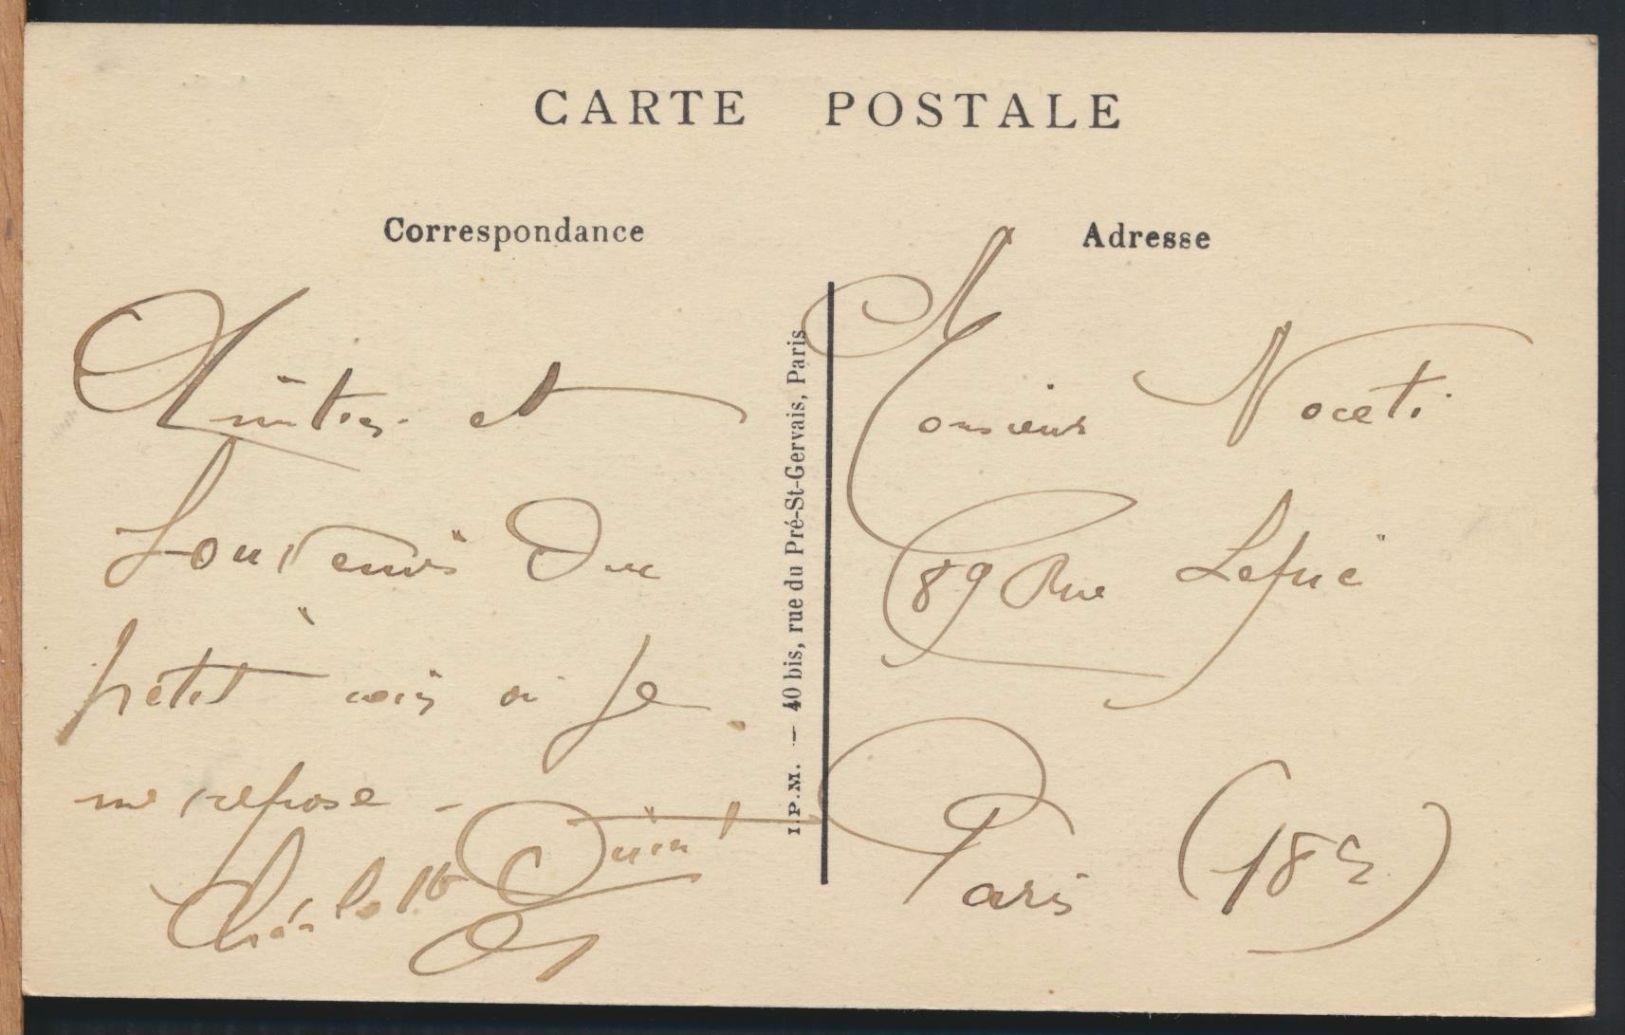 CARTE POSTALE
Correspondance
Amitiés et
Souvenirs du
petit coin où je
me repose -
Charlotte
I.P.M. — 40 bis, rue du Pré-St-Gervais, Paris
Adresse
Monsieur Noceti
89 Rue Lepic
Paris (18e)